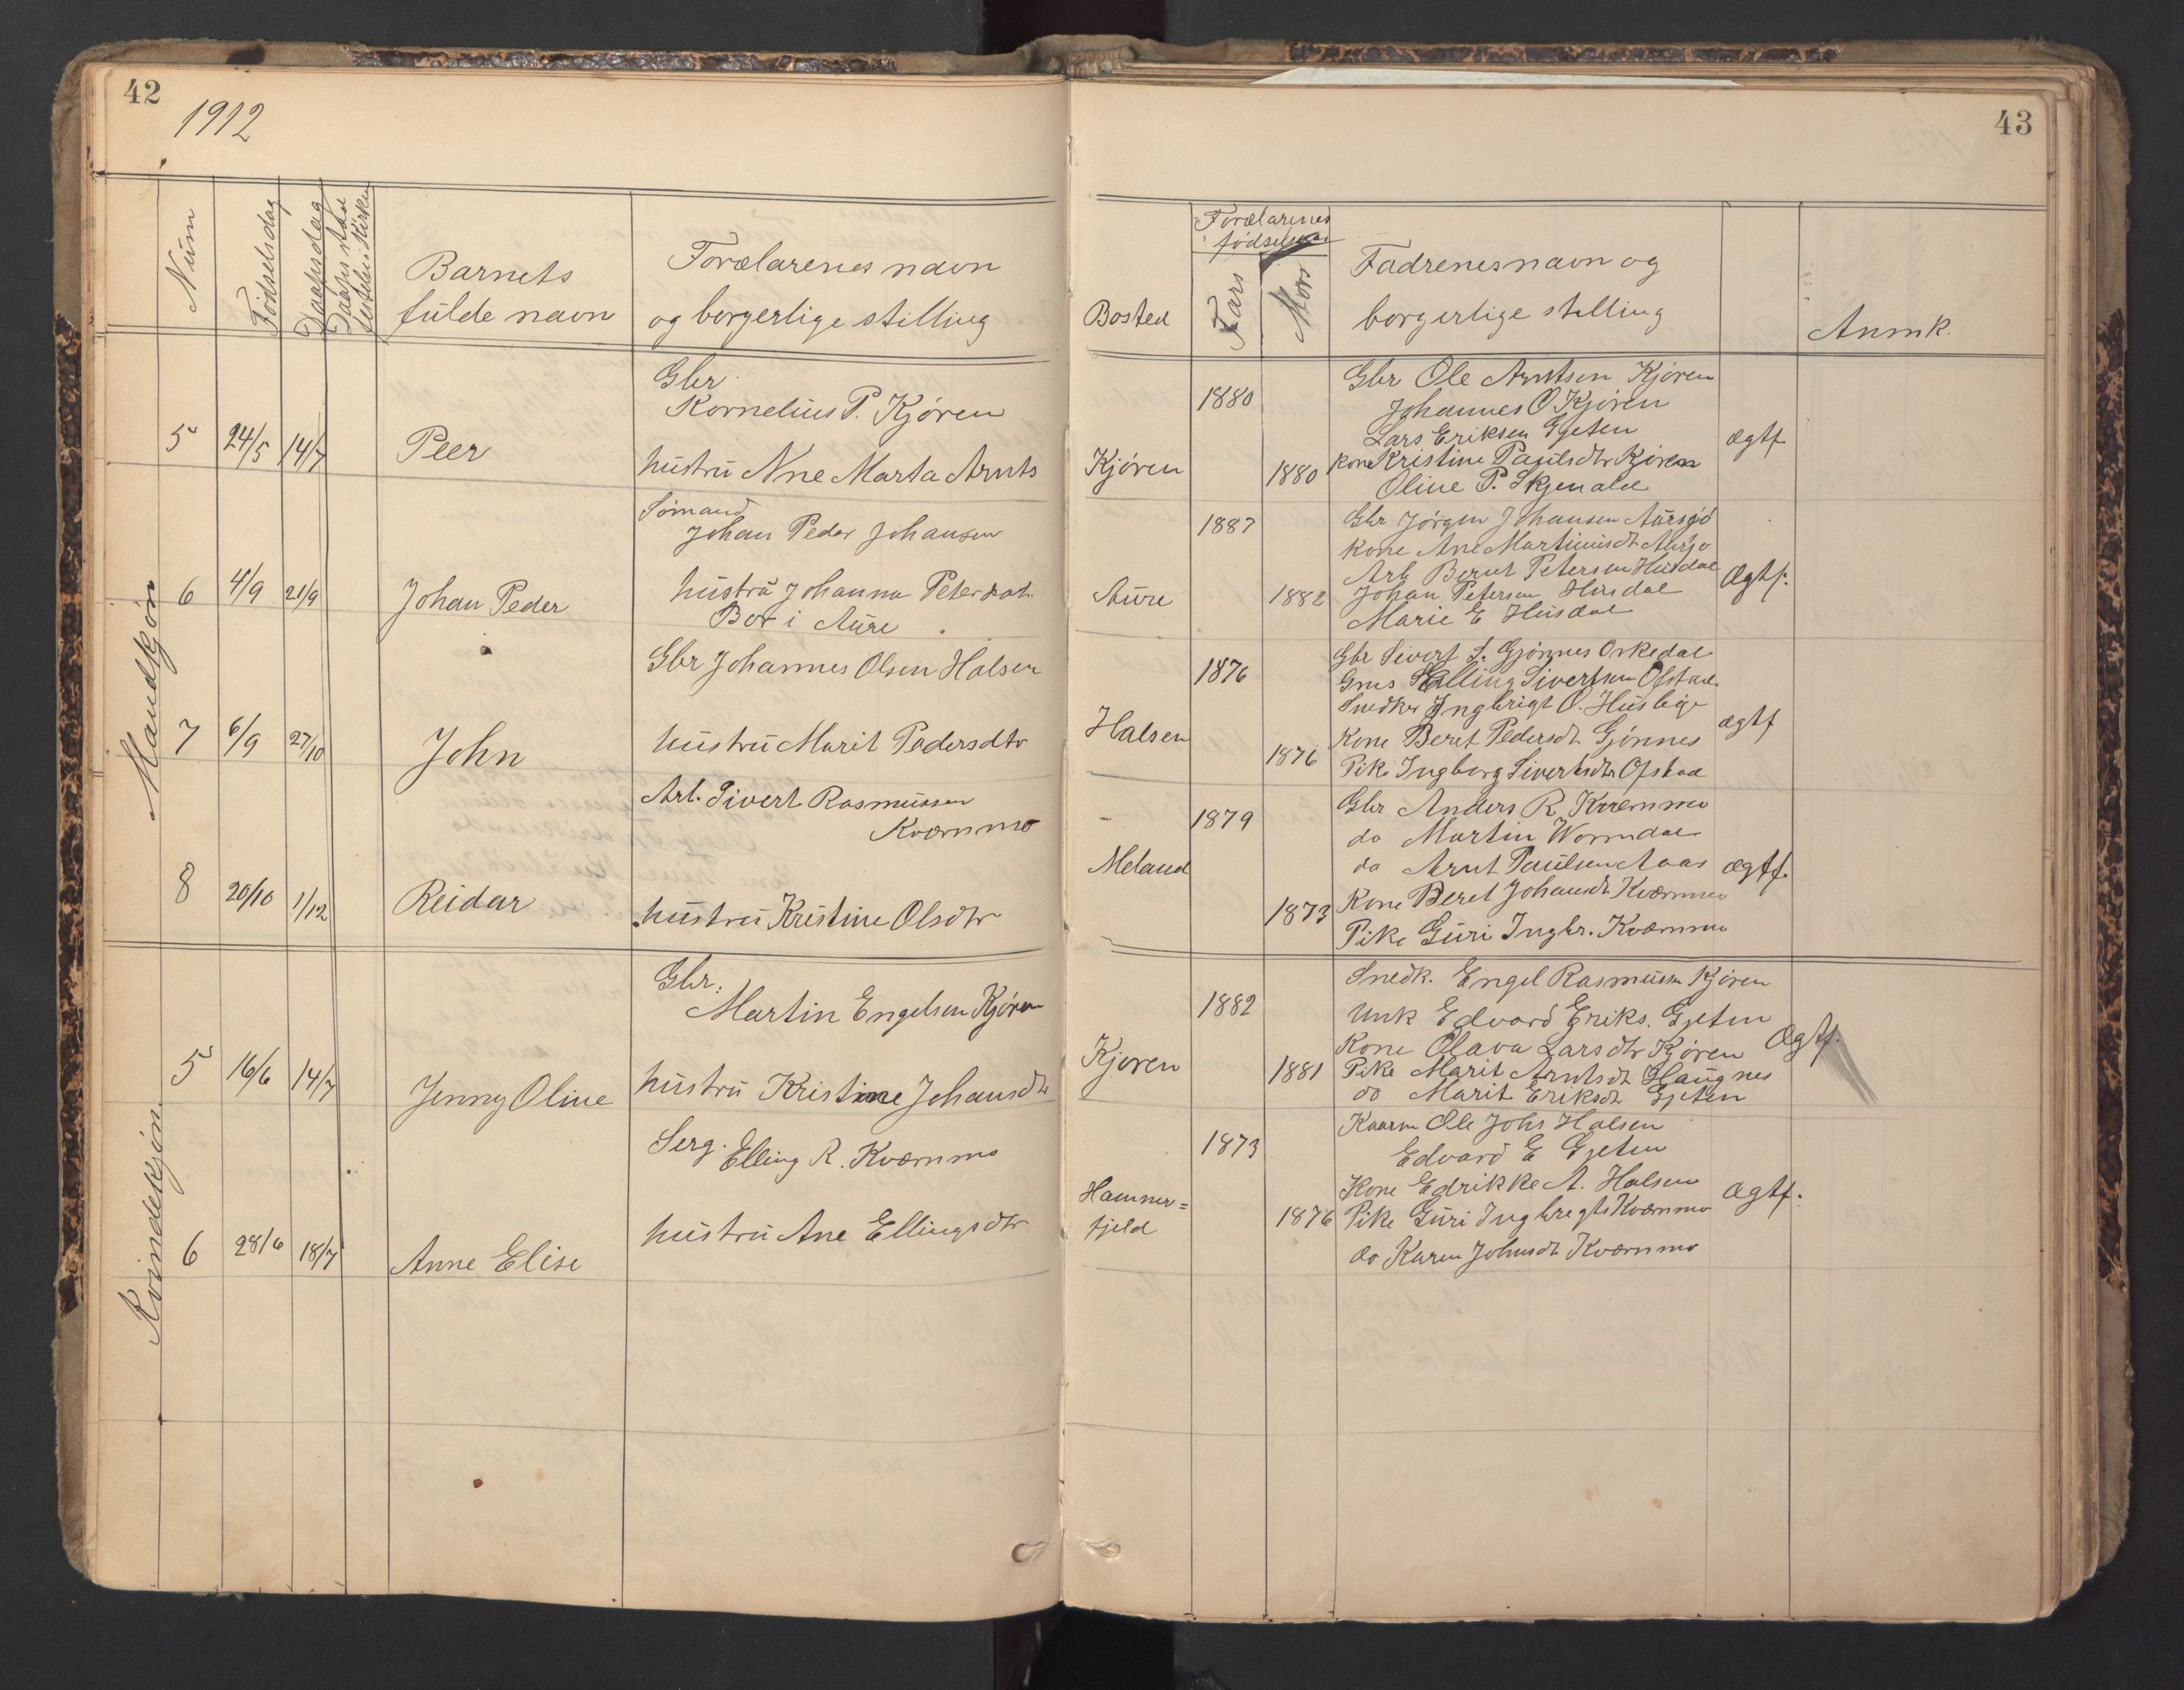 42
1912
Num
Födselsdag
Daapsdag
Barnets
fulde navn
Forælarenes navn
og borgerlige stilling
Mandkjøn
5 24/5 14/7 Peer
Gbr
Kornelius P. Kjøren
hustru Ane Marta Arnts
6 4/9 21/9 Johan Peder
Sømand
Johan Peder Johansen
hustru Johanna Petersdat.
Bor i Aure
7 6/9 27/10 John
Gbr Johannes Olsen Halsen
hustru Marit Padersdtr
8 20/10 1/12 Reidar
Arb. Sivert Rasmussen
Kværnmo
hustru Kristine Olsdtr
Kvindekjøn
5 16/6 14/7 Jenny Oline
Gbr.
Martin Engelsen Kjøren
hustru Kristine Johansdtr
6 28/6 18/7 Anne Elise
Serg. Elling R. Kværnmo
hustru Ane Ellingsdtr
43
Bosted
Forælarenes
Fars
Mors
Fadrenes navn og
borgerlige stilling
Anmk.
Kjøren
1880
1880
Gbr Ole Arntsen Kjøren
Johannes O. Kjøren
Lars Eriksen Gjeten
Kone Kristine Paulsdtr Kjøren
Oline P.
ægtf
Aure
1887
1882
Gbr Jørgen Johansen Aursjø
Kone Ane Aursjo
Arb Bernt Petersen Husdal
Johan Petersen Husdal
Marie E Husdal
Ægtf.
Halsen
1876
1876
Gbr Sivert S. Gjønnes Orkedal
Elling Sivertsen Ofstad
Snedker Ingbrigt O. Husbye
Kone Beret Pedersdt Gjønnes
Pike Ingborg Sivertsdtr Ofstad
ægtf
Meland
1879
1873
Gbr Anders R Kværnmo
do Martin Wormdal
do Arnt Paulsen Aaas
Kone Beret Johansdt Kværnmo
Pike Guri Ingbr. Kværnmo
ægtf.
Kjoren
1882
1881
Snedk. Engel Rasmussen Kjören
Unk Edvard Eriks. Gjeten
Kone Olava Larsdtr Kjøren
Pike Marit Arntsdt Haugnes
do Marit Eriksdt Gjeten
Ægtf.
Hammer=
fjeld
1873
1876
Kaarm Ole Johs Halsen
Edvard E Gjeten
Kone Edrikke A. Halsen
Pike Guri Ingbregts Kværnmo
do Karen Johnsdt Kværnmo
Ægtf.